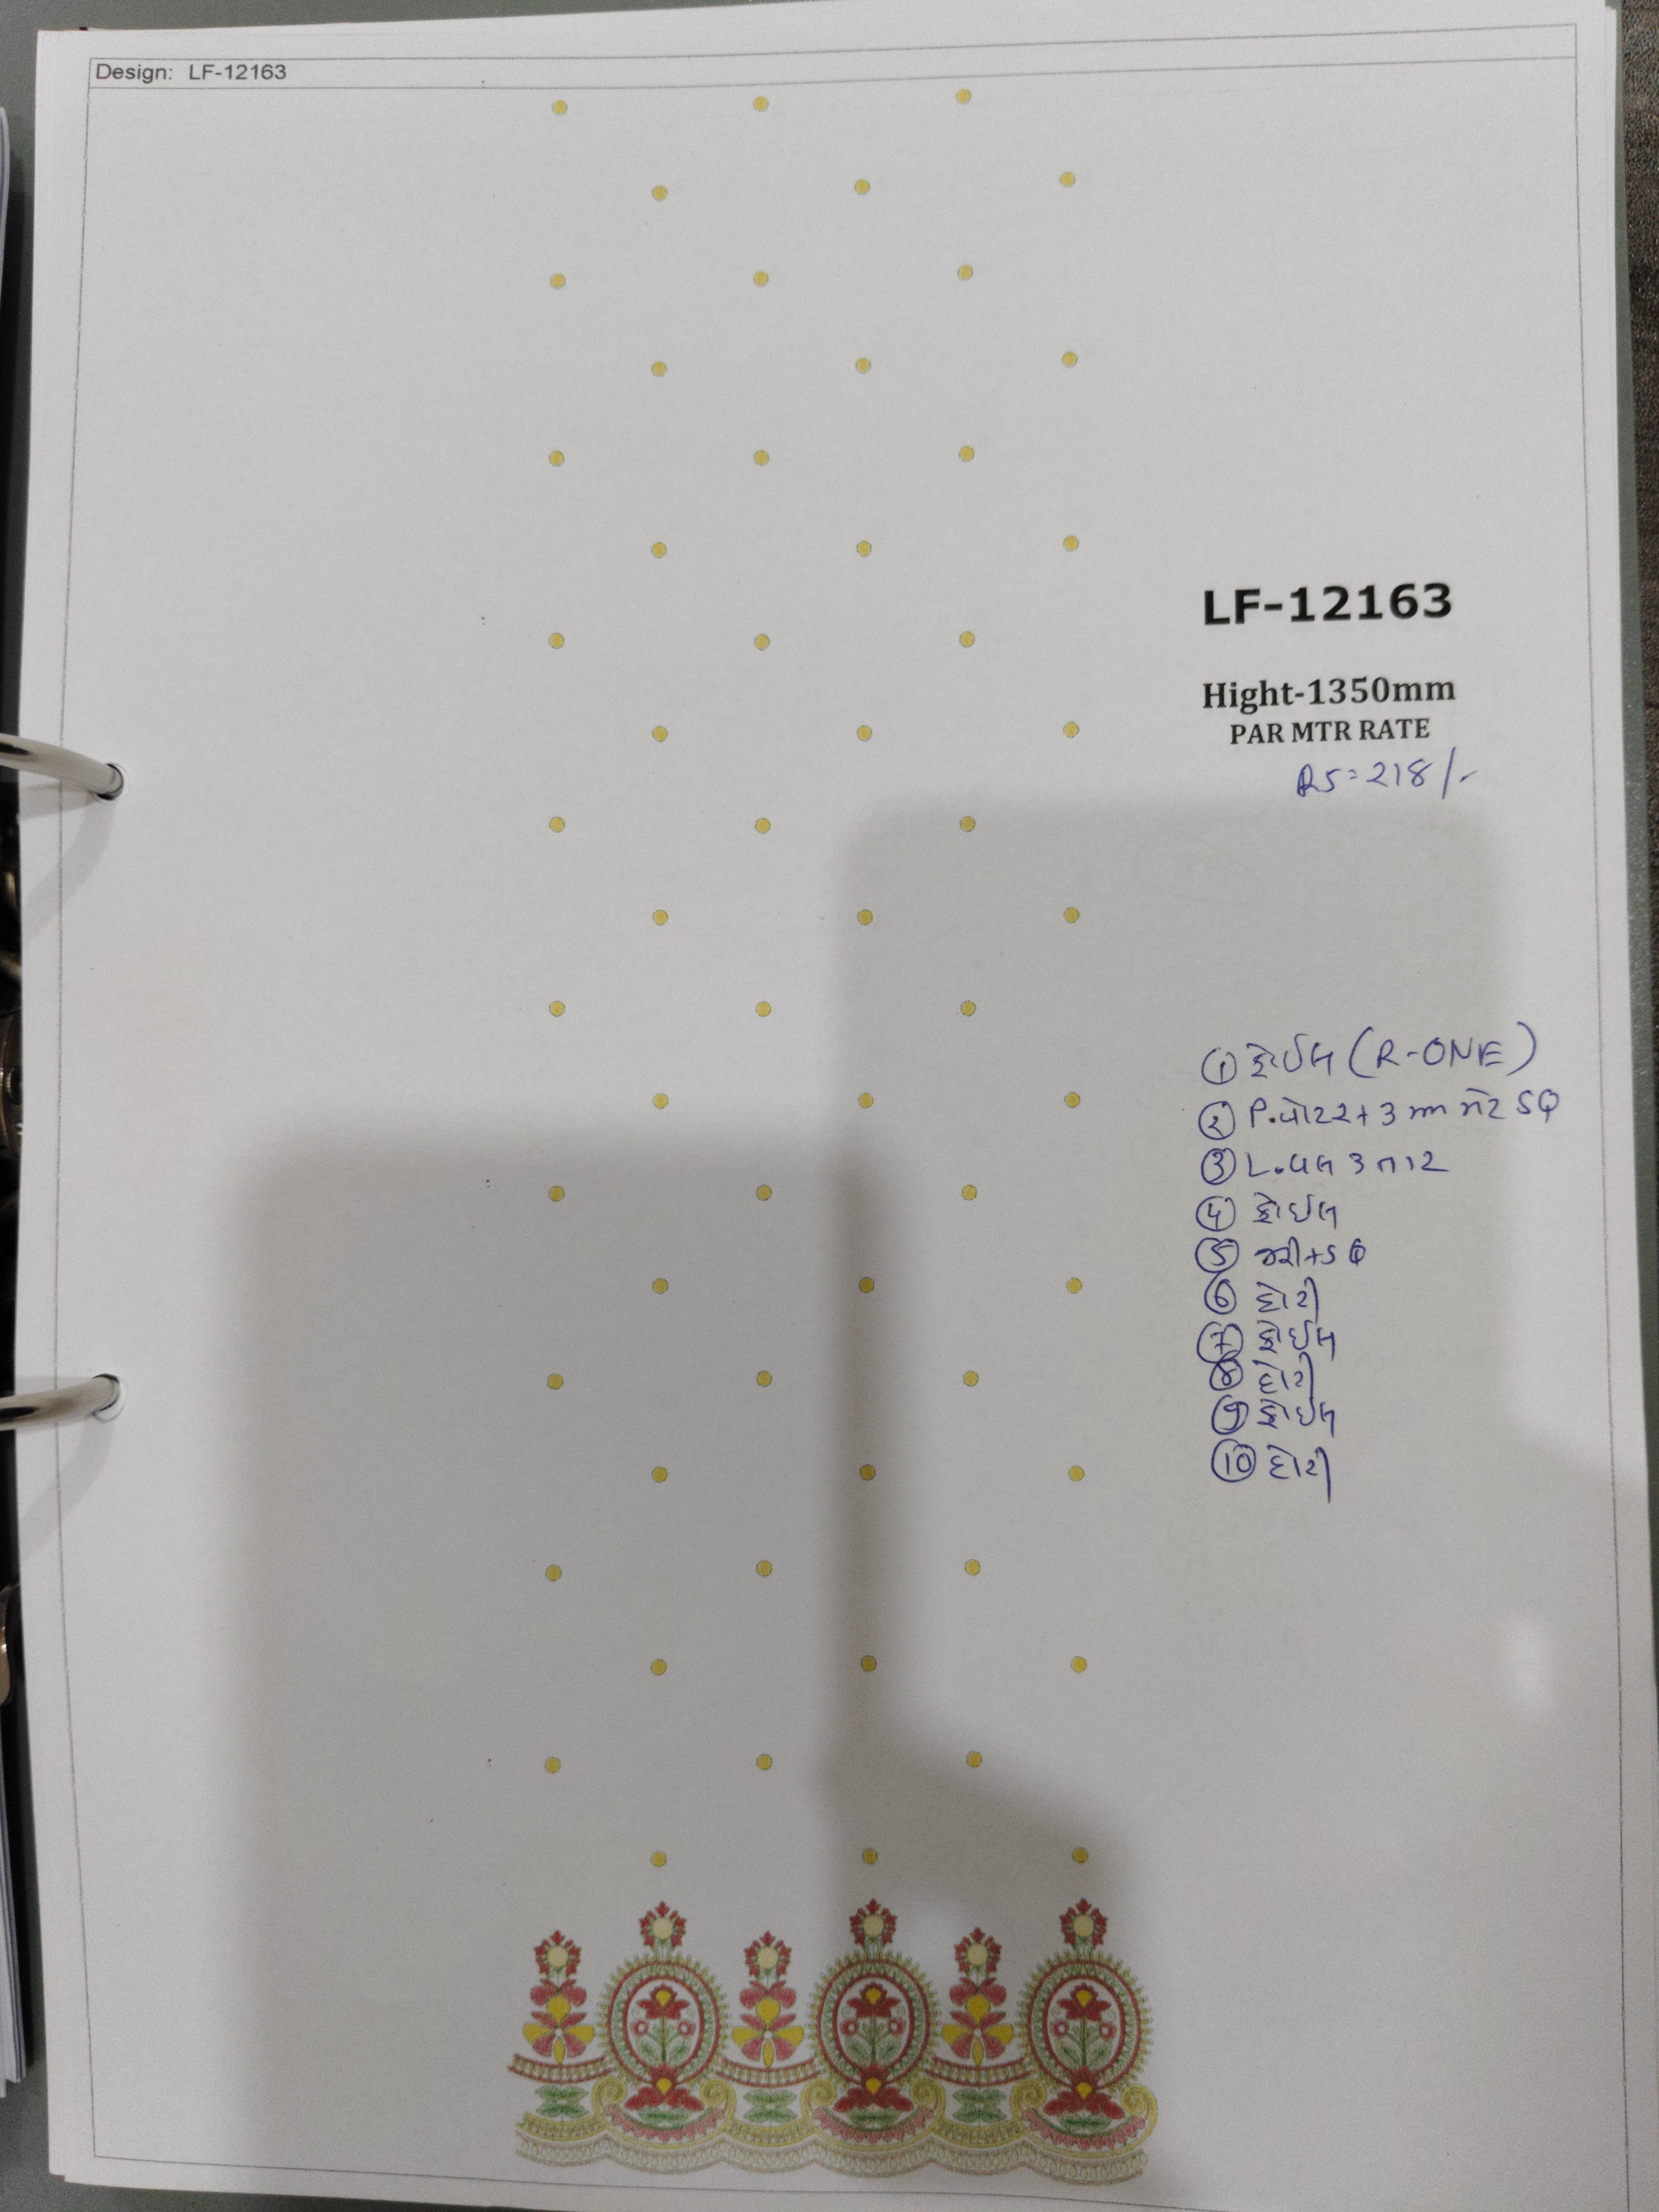 Design: LF-12163
LF-12163
Hight-1350mm
PAR MTR RATE
RS=218/-
① ફોઈલ (R-ONE)
② P.વોટર + 3 mm મેટ SQ
③ L.વલ 3 તાર
④ ફોઈલ
⑤ જરી+SQ
⑥ દોરી
⑦ ફોઈલ
⑧ દોરી
⑨ ફોઈલ
⑩ દોરી